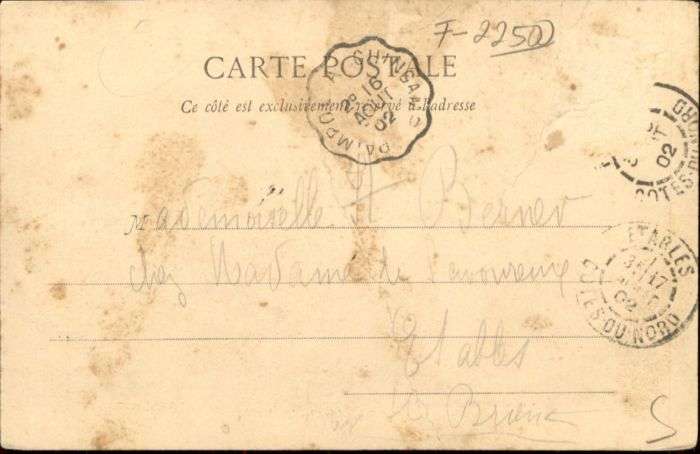 F-2250
CARTE POSTALE
Ce côté est exclusivement réservé à l'adresse
PAIMPOL A GUINGAMP
2º
16
AOUT
02
02
COTES DU NORD
Mademoiselle Bernev
chez Madame de
Etables
Brieuc
ETABLES
17
02
COTES DU NORD